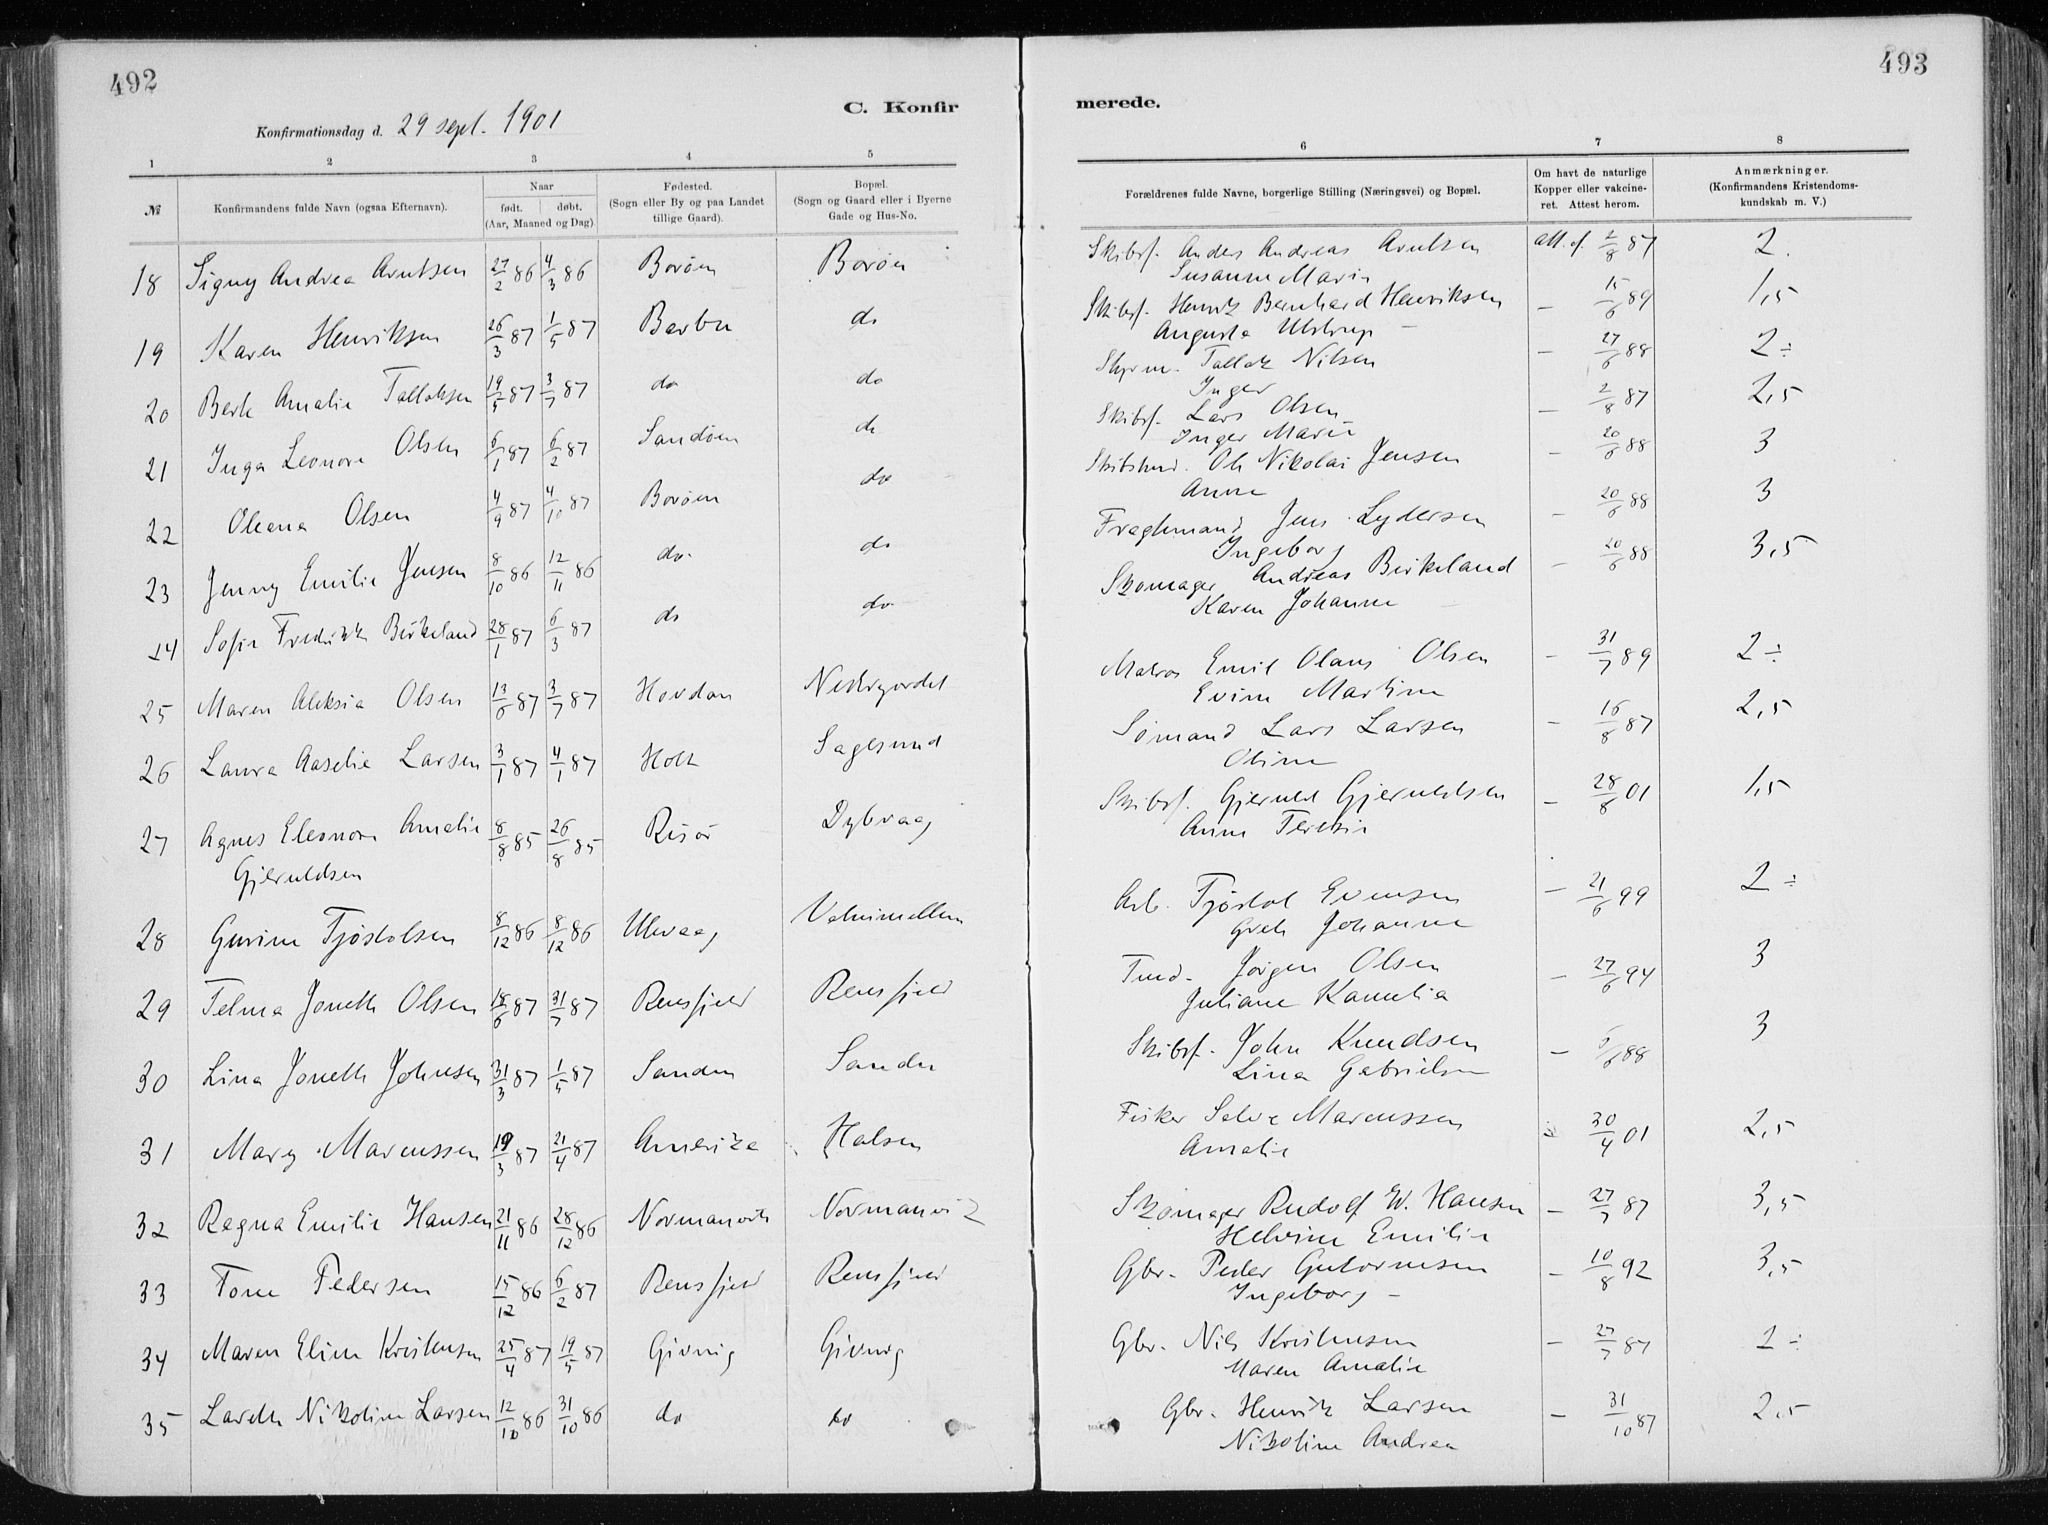 492
493
C. Konfir
merede.
Konfirmationsdag d. 29 sept. 1901
1 2 3 4 5
6 7 8
№
Konfirmandens fulde Navn (ogsaa Efternavn).
Naar
født. døbt.
(Aar, Maaned og Dag)
Fødested.
(Sogn eller By og paa Landet
tillige Gaard).
Bopæl.
(Sogn og Gaard eller i Byerne
Gade og Hus-No.
Forældrenes fulde Navne, borgerlige Stilling (Næringsvei) og Bopæl.
Om havt de naturlige
Kopper eller vakcine-
ret. Attest herom.
Anmærkninger.
(Konfirmandens Kristendoms-
kundskab m. V.)
18 Signy Andrea Arntsen 27/2 86 4/3 86 Borøen Borøen Skibsf. Anders Andreas Arntsen att. af. 2/8 87 2.
Susanne Marie
19 Karen Henriksen 26/3 87 1/5 87 Barbu do Skibsf. Henrik Bernhard Henriksen — 15/6 89 1,5
Augusta Ulstrup —
20 Berte Amalie Tallaksen 19/5 87 3/7 87 do do Styrm. Tallak Nilsen — 27/6 88 2 ÷
Inger
21 Inga Leonore Olsen 6/1 87 6/2 87 Sandøen do Skibsf. Lars Olsen — 2/8 87 2,5
Inger Marie
22 Oleana Olsen 4/9 87 4/10 87 Borøen do Skibstmd. Ole Nikolai Jensen — 20/6 88 3
Anne
23 Jenny Emilie Jensen 8/10 86 12/11 86 do. do Fragtmand Jens Lydersen — 20/6 88 3
Ingeborg
14 Sofie Fredrikke Birkeland 28/1 87 6/3 87 do do Skomager Andreas Birkeland — 20/6 88 3,5
Karen Johanne
25 Maren Aleksia Olsen 13/6 87 3/7 87 Hovdan Nedregordet Matros Emil Olaus Olsen — 31/7 89 2 ÷
Evine Martine
26 Laura Aaselie Larsen 3/1 87 4/1 87 Holt Sagesund Sømand Lars Larsen — 16/8 87 2,5
Oline
27 Agnes Eleonore Amalie 8/8 85 26/8 85 Risør Dybvaag Skibsf. Gjeruld Gjeruldsen — 28/8 01 1,5
Gjeruldsen Anne Teresie
28 Gurine Tjøstolsen 8/12 86 8/12 86 Ulevaag Arb. Tjøstol Evensen — 21/6 99 2 ÷
Grete Johanne
29 Telma Jonette Olsen 18/6 87 31/7 87 Rensfjeld Rensfjeld Tmd. Jørgen Olsen — 27/6 94 3
Juliane Kamelia
30 Lina Jonette Johnsen 31/3 87 1/5 87 Sanden Sanden Skibsf. John Knudsen — 5/6 88 3
Lina Gabrielsen
31 Mary Marcussen 19/3 87 21/4 87 Amerika Halsen Fisker Salve Marcussen 30/4 01 2,5
Amalie
32 Ragna Emilie Hansen 21/11 86 28/12 86 Normanvik Normanvik Skomager Rudolf W. Hansen — 27/7 87 3,5
Helvine Emilie
33 Tone Pedersen 15/12 86 6/2 87 Rensfjeld Rensfjeld Gbr. Peder Gutormsen — 10/8 92 3,5
Ingeborg —
34 Maren Eline Kristensen 25/4 87 19/5 87 Givnig Givnig Gbr. Nils Kristensen — 27/7 87 2 ÷
Maren Amalie
35 Larette Nikoline Larsen 12/10 86 31/10 86 do do Gbr. Henrik Larsen — 31/10 87 2,5
Nikoline Andrea